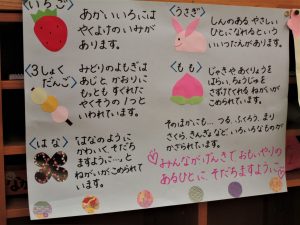 <いちご>
あかいいろには
やくよけのいみが
あります。
<3しょく
だんご>
みどりのよもぎは
あじと、かおりに
もっとも すぐれた
やくそうの1つと
いわれています。
<はな>
はなのように
かわいく、そだち
ますように…。と
ねがいが、こめられて
います。
<うさぎ>
しんのある やさしい
ひとになれるという
いいつたえがあります。
<もも>
じゃきや あくりょうを
はらい、ちょうじゅを
さずけてくれる ねがいが
こめられています。
そのほかにも… つる、ふくろう、まり
さくら、きんぎょなど いろいろなものが
かざられています。
みんながげんきで おもいやりの
あるひとに、そだちますように